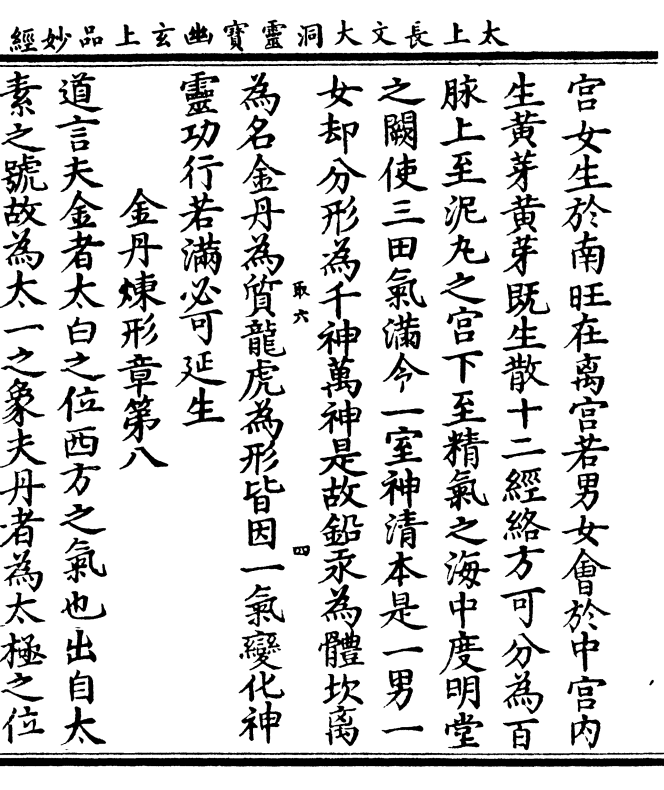 太上長文大洞靈寶幽玄上品妙經
宫女生於南旺在离宫若男女會於中宫内
生黄芽黄芽既生散十二經絡方可分為百
脉上至泥丸之宫下至精氣之海中度明堂
之闕使三田氣滿令一室神清本是一男一
女却分形為千神萬神是故鉛汞為體坎离
為名金丹為質龍虎為形皆因一氣變化神
取六
四
靈功行若滿必可延生
金丹煉形章第八
道言夫金者太白之位西方之氣也出自太
素之號故為太一之象夫丹者為太極之位